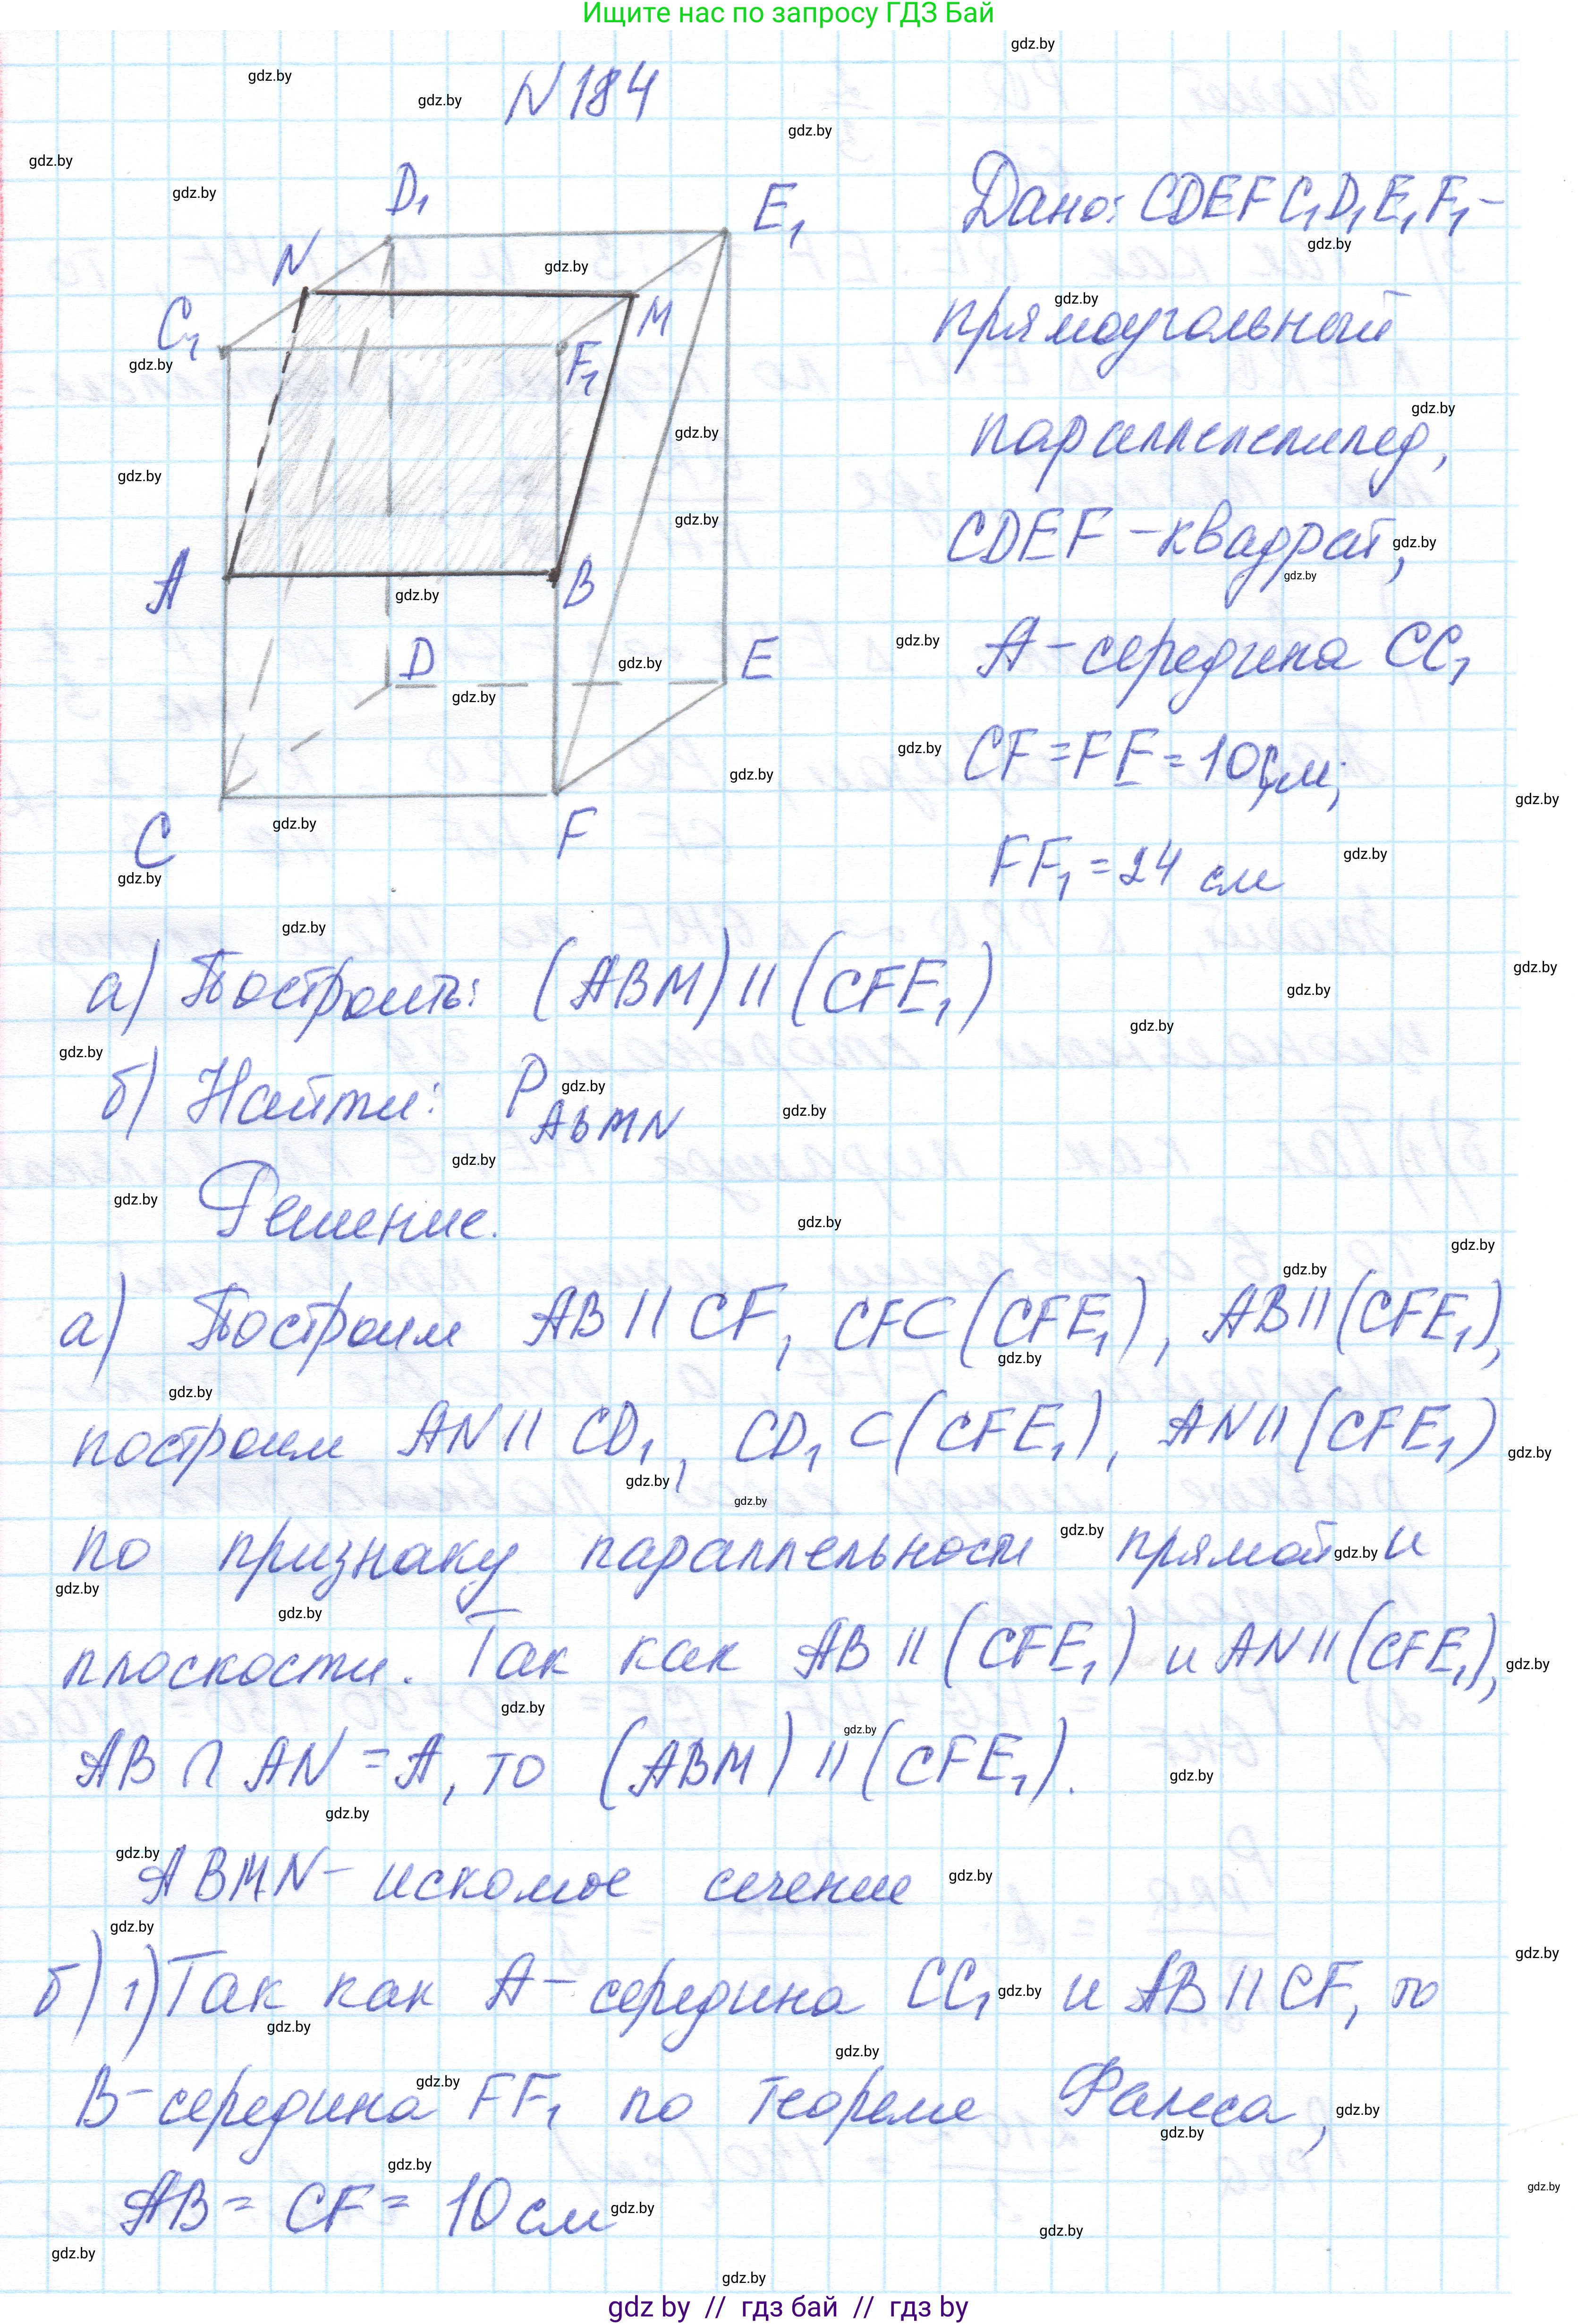 Ищите нас по запросу ГДЗ Бай
N 184
D₁
E₁
N
C₁
M
F₁
A
B
D
E
C
F
Дано: CDEFC₁D₁E₁F₁ -
прямоугольный
параллелепипед,
CDEF - квадрат,
A - середина CC₁
CF = FE = 10см;
FF₁ = 24 см
а) Построить: (ABM) || (CFE₁)
б) Найти: P ABMN
Решение.
а) Построим AB || CF, CF⊂(CFE₁), AB||(CFE₁),
построим AN || CD₁, CD₁ ⊂ (CFE₁), AN || (CFE₁)
по признаку параллельности прямой и
плоскости. Так как AB || (CFE₁) и AN || (CFE₁),
AB ∩ AN = A, то (ABM) || (CFE₁).
ABMN - искомое сечение
б) 1) Так как A - середина CC₁ и AB || CF, то
B - середина FF₁ по теореме Фалеса,
AB = CF = 10 см
gdz by // гдз бай // гдз by